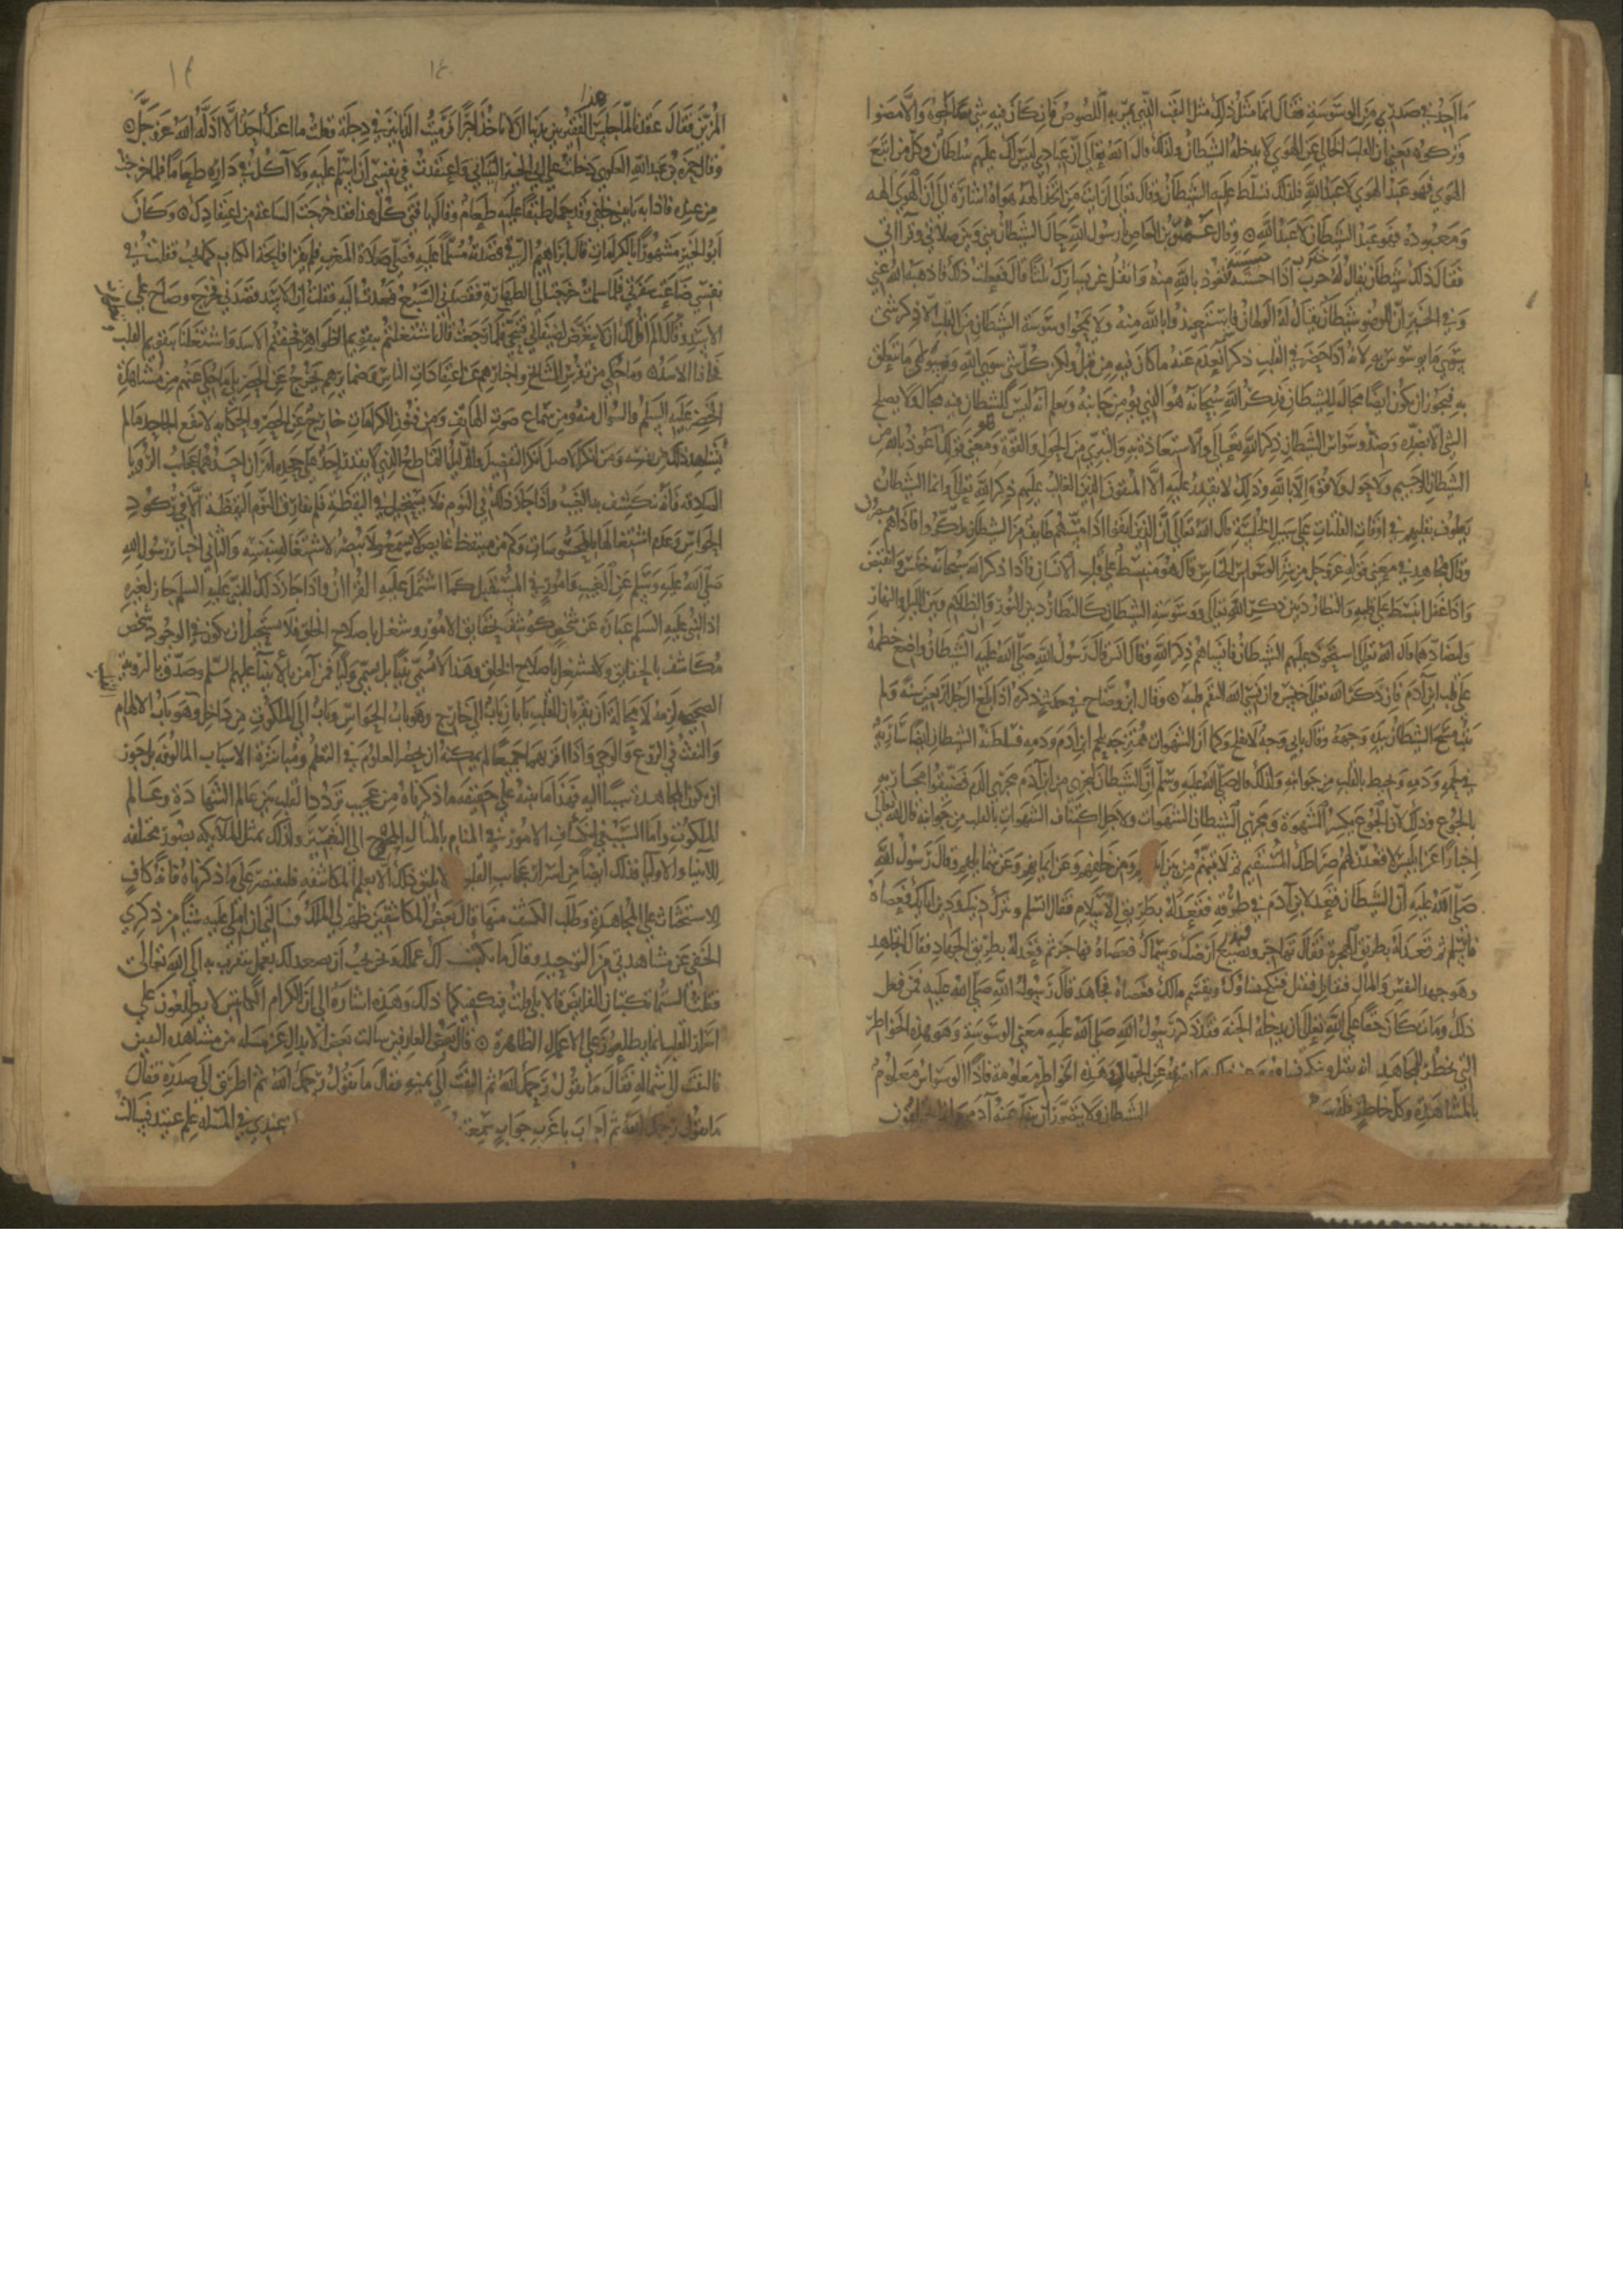 ما اجد في صدري من الوسوسة فقال انما مثل ذلك مثل البيت الذي يمر به اللصوص فان كان فيه شي عالجوه والا مضوا
وتركوه يعني ان القلب الخالي عن الهوي لا يدخله الشيطان ولذلك قال الله تعالى ان عبادي ليس لك عليهم سلطان وكل من اتبع
الهوي فهو عبد الهوي لا عبد الله فلذلك تسلط عليه الشيطان وقال تعالى افرايت من اتخذ الهه هواه اشارة الى ان الهوي الهه
ومعبوده فهو عبد الشيطان لا عبد الله وقال عمرو بن العاص يا رسول الله حال الشيطان بيني وبين صلاتي وقرآاتي
فقال ذلك شيطان يقال له خنزب اذا احسسته فتعوذ بالله منه واتفل عن يسارك ثلثا قال ففعلت ذلك فاذهبه الله عني
وفي الخبر ان للوضو شيطانا يقال له الولهان فاستعيذوا بالله منه ولا يمحوا وسوسة الشيطان من القلب الا ذكر شي
سوي ما يوسوس به لانه اذا حضر في القلب ذكر شي انعدم عنه ما كان فيه من قبل ولكن كل شي سوي الله وسوي ما يتعلق
به فيجوز ان يكون ايضا مجالا للشيطان فذكر الله سبحانه هو الذي يؤمن جانبه ويعلم انه ليس للشيطان فيه مجال ولا يعالج
الشي الا بضده وضد وسواس الشيطان ذكر الله تعالى والاستعاذة به والتبري من الحول والقوة وهو معنى قولك اعوذ بالله من
الشيطان الرجيم ولا حول ولا قوة الا بالله وذلك لا يقدر عليه الا المتقون الذين الغالب عليهم ذكر الله تعالى وانما الشيطان
يطوف بقلبهم في اوقات الفلتات على سبيل الخلسة قال الله تعالى ان الذين اتقوا اذا مسهم طايف من الشيطان تذكروا فاذا هم مبصرون
وقال مجاهد في معنى قوله عز وجل من شر الوسواس الخناس قال هو منبسط على قلب الانسان فاذا ذكر الله سبحانه خنس وانقبض
واذا غفل انبسط على قلبه والتطارد بين ذكر الله تعالى ووسوسة الشيطان كالتطارد بين النور والظلام وبين الليل والنهار
ولتضادهما قال الله تعالى استحوذ عليهم الشيطان فانساهم ذكر الله وقال انس قال رسول الله صلى الله عليه الشيطان واضع خطمه
على قلب ابن آدم فان ذكر الله تعالى خنس وان نسي الله التقم قلبه وقال ابن وضاح في حديث ذكره اذا بلغ الرجل اربعين سنة ولم
يتب مسح الشيطان بيده وجهه وقال بابي وجه لا يفلح وكما ان الشهوات ممتزجة بلحم ابن آدم ودمه فسلطنة الشيطان ايضا سارية
في لحمه ودمه ومحيط بالقلب من جوانبه ولذلك قال صلى الله عليه وسلم ان الشيطان ليجري من ابن آدم مجري الدم فضيقوا مجاريه
بالجوع وذلك لان الجوع يكسر الشهوة ومجري الشيطان الشهوات ولاجل اكتناف الشهوات بالقلب من جوانبه قال الله تعالى
اخبارا عن ابليس لاقعدن لهم صراطك المستقيم ثم لاتينهم من بين ايديهم ومن خلفهم وعن ايمانهم وعن شمايلهم وقال رسول الله
صلى الله عليه ان الشيطان قعد لابن آدم في طرقه فقعد له بطريق الاسلام فقال اتسلم وتترك دينك ودين ابايك فعصاه
فاسلم ثم قعد له بطريق الهجرة فقال تهاجر وتدع ارضك وسماك فعصاه فهاجر ثم قعد له بطريق الجهاد فقال اتجاهد
وهو جهد النفس والمال فتقاتل فتقتل فتنكح نساؤك ويقسم مالك فعصاه فجاهد قال رسول الله صلى الله عليه فمن فعل
ذلك ومات كان حقا على الله تعالى ان يدخله الجنة فقد ذكر رسول الله صلى الله عليه معنى الوسوسة وهو هذه الخواطر
التي تخطر للمجاهد انه يقتل وتنكح نساؤه وهذه الخواطر معلومة فاذا الوسواس معلوم
بالمشاهدة وكل خاطر فله الشيطان ولا يتصور ان ينفك عنه آدمي
١٤
المزين فقال عقدنا لما جلس الفقير بين يدينا ان لا ياخذ اجرا فرميت الدنانير في دجلة وقلت ما اعزك احد الا اذله الله عز وجل
وقال حمزة بن عبد الله العلوي دخلت على ابي الخير التيناني واعتقدت في نفسي ان اسلم عليه ولا آكل في داره طعاما فلما خرجت
من عنده فاذا به يا بني خلفي وقد حمل طبقا عليه طعام وقال يا فتى كل هذا فقد خرجت الساعة من اعتقادك وكان
ابو الخير مشهورا بالكرامات قال ابراهيم الرقي قصدته مسلما عليه فصلى صلاة المغرب فلم يقرا فاتحة الكتاب كما يجب فقلت في
نفسي ضاعت سفرتي فلما سلمت خرجت الى الطهارة فقصدني السبع فعدت اليه فقلت ان الاسد قصدني فخرج وصاح على
الاسد وقال الم اقل لك ان لا تتعرض لضيفاني فتنحى فلما رجعت قال اشتغلتم بتقويم الظواهر فخفتم الاسد واشتغلنا بتقويم القلب
فخافنا الاسد وما حكي من تفرس المشايخ واخبارهم عن اعتقادات الناس وضمايرهم يخرج عن الحصر بل ما حكي عنهم من مشاهدة
الخضر عليه السلم والسؤال منه ومن سماع صوت الهاتف ومن فنون الكرامات خارج عن الحصر والحكاية لا تنفع الجاحد ما لم
يشاهد ذلك من نفسه ومن انكر الاصل انكر التفصيل والدليل القاطع الذي لا يقدر احد على جحده امران احدهما عجايب الرؤيا
الصادقة فانه ينكشف بها الغيب واذا جاز ذلك في النوم فلا يستحيل في اليقظة فلم يفارق النوم اليقظة الا في ركود
الحواس وعدم اشتغالها بالمحسوسات وكم من مستيقظ غايص لا يسمع ولا يبصر لاشتغاله بنفسه والثاني اخبار رسول الله
صلى الله عليه وسلم عن الغيب وامور في المستقبل كما اشتمل عليه القرآن واذا جاز ذلك للنبي عليه السلم جاز لغيره
اذ النبي عليه السلم عبارة عن شخص كوشف بحقايق الامور وشغل باصلاح الخلق فلا يستحيل ان يكون في الوجود شخص
مكاشف بالحقايق ولا يشتغل باصلاح الخلق وهذا لا يسمى نبيا بل يسمى وليا فمن آمن بالانبيآ عليهم السلم وصدق بالرؤية
الصحيحة لزمه لا محالة ان يقر بان القلب له بابان باب الى خارج وهو باب الحواس وباب الى الملكوت من داخل وهو باب الالهام
والنفث في الروع والوحي واذا اقر بهما جميعا لم يمكنه ان يحصر العلوم في التعلم ومباشرة الاسباب المالوفة بل يجوز
ان يكون المجاهدة سببا اليه فهذا ما ينبه على حقيقة ما ذكرناه من عجيب تردد القلب بين عالم الشهادة وعالم
الملكوت واما السبب في انكشاف الامور في المنام بالمثال المحوج الى التفسير ولذلك تمثل الملآيكة بصور مختلفة
للانبياء والاوليآ فذلك ايضا من اسرار عجايب القلب لا يليق ذلك الا بعلم المكاشفة فلنقتصر على ما ذكرناه فانه كاف
للاستحثاث على المجاهدة وطلب الكشف منها قال بعض المكاشفين ظهر لي الملك فسالني ان املي عليه شيا من ذكري
الخفي عن مشاهدتي من التوحيد وقال ما نكتب لك عملا ونحن نحب ان نصعد لك بعمل نتقرب به الى الله تعالى
فقلت الستما تكتبان الفرايض قالا بلى قلت فيكفيكما ذلك وهذه اشارة الى ان الكرام الكاتبين لا يطلعون على
اسرار القلب انما يطلعون على الاعمال الظاهرة قال بعض العارفين سالت بعض الابدال عن مسئلة من مشاهدة اليقين
فالتفت الى شماله فقال ما تقول رحمك الله ثم التفت الى يمينه فقال ما تقول رحمك الله ثم اطرق الى صدره فقال
ما تقول رحمك الله ثم اجاب باغرب جواب سمعته عندي في المسئلة علم عتيد فسالت